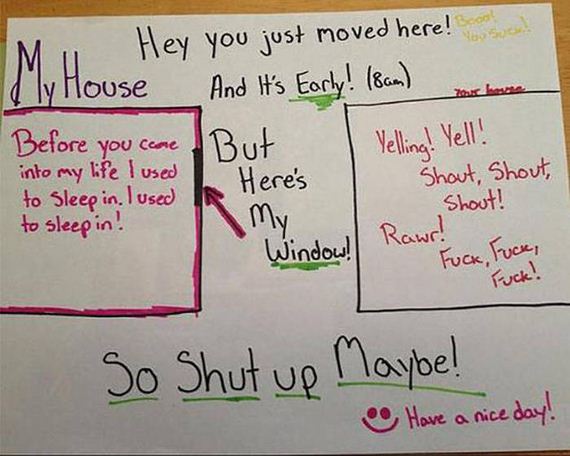 Hey you just moved here!
Booo!
You Suck!
My House
And It's Early! (8am)
Your house
Before you came
into my life I used
to Sleep in. I used
to sleep in!
But
Here's
My
Window!
Yelling! Yell!
Shout, Shout,
Shout!
Rawr!
Fuck, Fuck,
Fuck!
So Shut up Maybe!
Have a nice day!